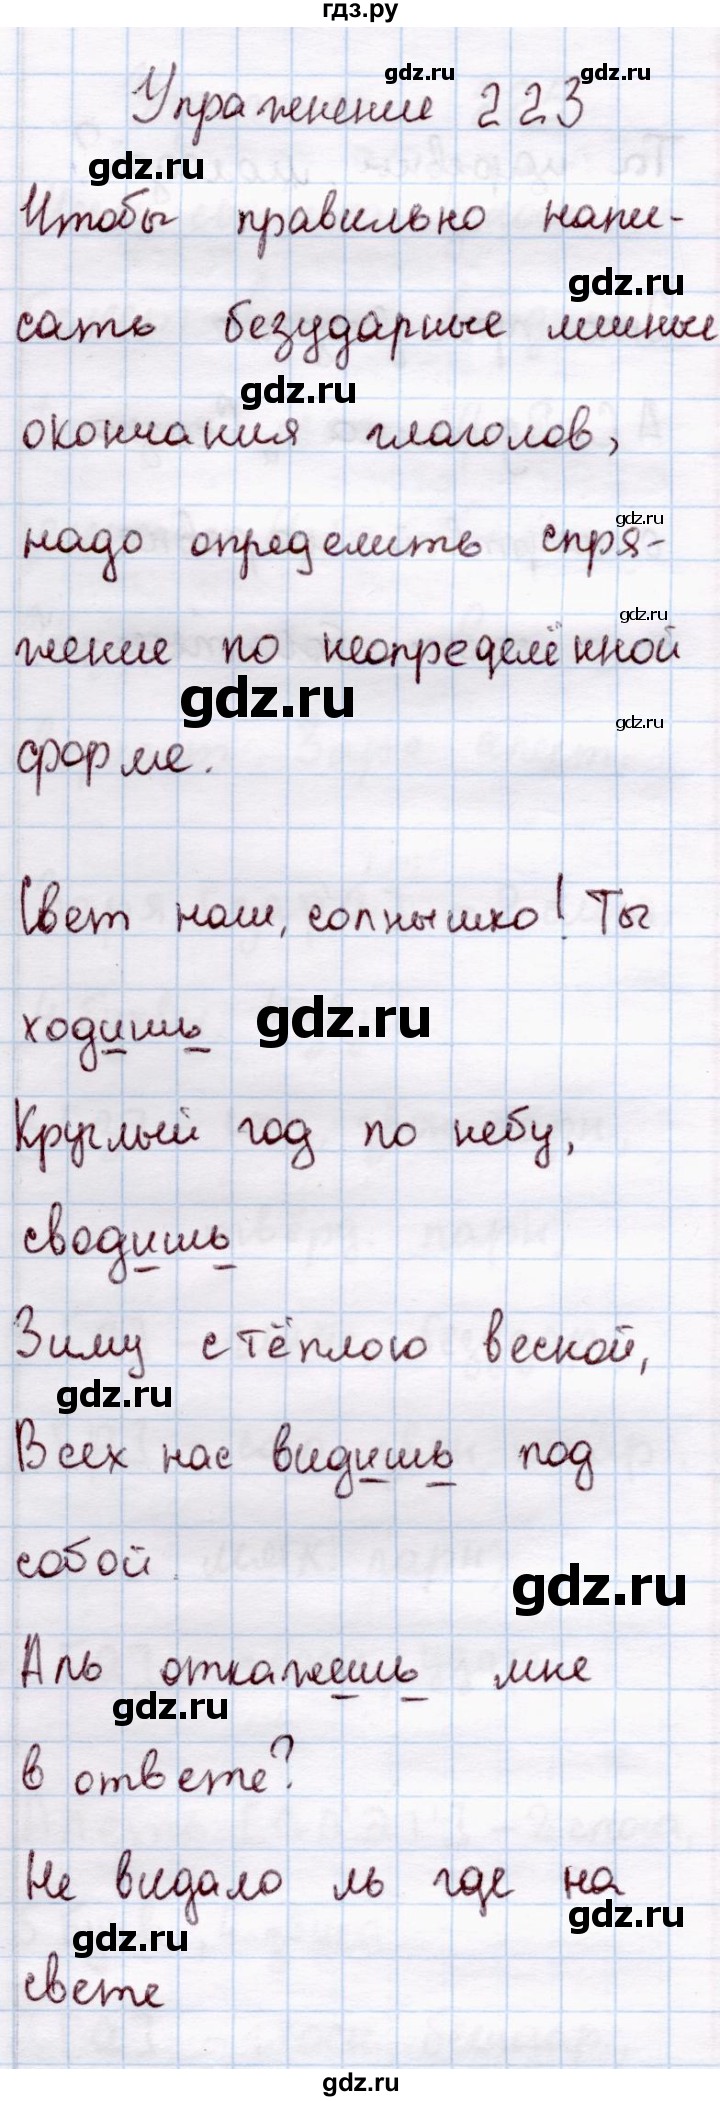 гдз.ру
gdz.ru gdz.ru
Упражнение 223
gdz.ru
Чтобы правильно напи-
gdz.ru
сать безударные личные
gdz.ru
окончания глаголов,
gdz.ru
надо определить спря-
gdz.ru
жение по неопределённой
gdz.ru
gdz.ru
форме.
Свет наш, солнышко! Ты
ходишь gdz.ru
Круглый год по небу,
сводишь
Зиму с тёплою весной,
gdz.ru
Всех нас видишь под
собой.
gdz.ru
Аль откажешь мне
gdz.ru
в ответе?
Не видало ль где на
gdz.ru
gdz.ru
свете
gdz.ru